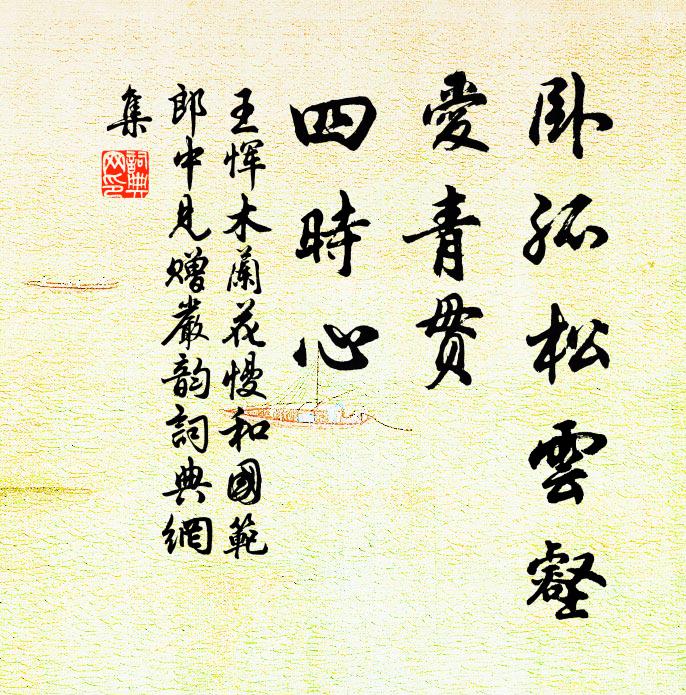 卧孤松雲壑
愛青貫
四時心
王惲木蘭花慢和國範
郎中見贈嚴韵詞典網
集
詞典
网印